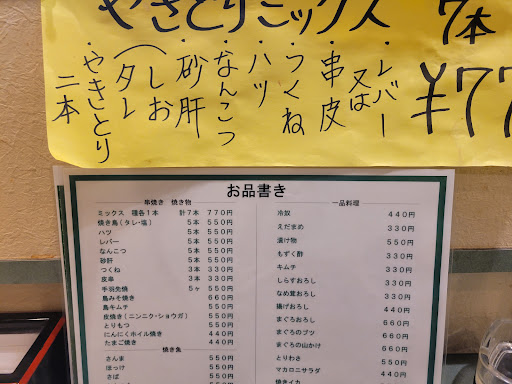 やきとりミックス 7本
・レバー ¥77
又は
串皮
・つくね
・ハツ
・なんこつ
・砂肝
・しお
タレ
・やきとり
二本
お品書き
串焼き 焼き物
ミックス 種各1本 計7本 770円
焼き鳥(タレ・塩) 5本 550円
ハツ 5本 550円
レバー 5本 550円
なんこつ 5本 550円
砂肝 5本 550円
つくね 3本 330円
皮串 3本 330円
手羽先焼 5ヶ 550円
鳥みそ焼き 660円
鳥キムチ 550円
炭焼き(ニンニク・ショウガ) 550円
とりもつ 550円
にんにくホイル焼き 440円
たまご焼き 440円
焼き魚
さんま 550円
ほっけ 550円
さば 550円
一品料理
冷奴 440円
えだまめ 330円
漬け物 550円
もずく酢 330円
キムチ 330円
しらすおろし 330円
なめ茸おろし 330円
揚げおろし 440円
まぐろおろし 660円
まぐろのブツ 660円
まぐろの山かけ 660円
とりわさ 550円
マカロニサラダ 440円
焼きイカ